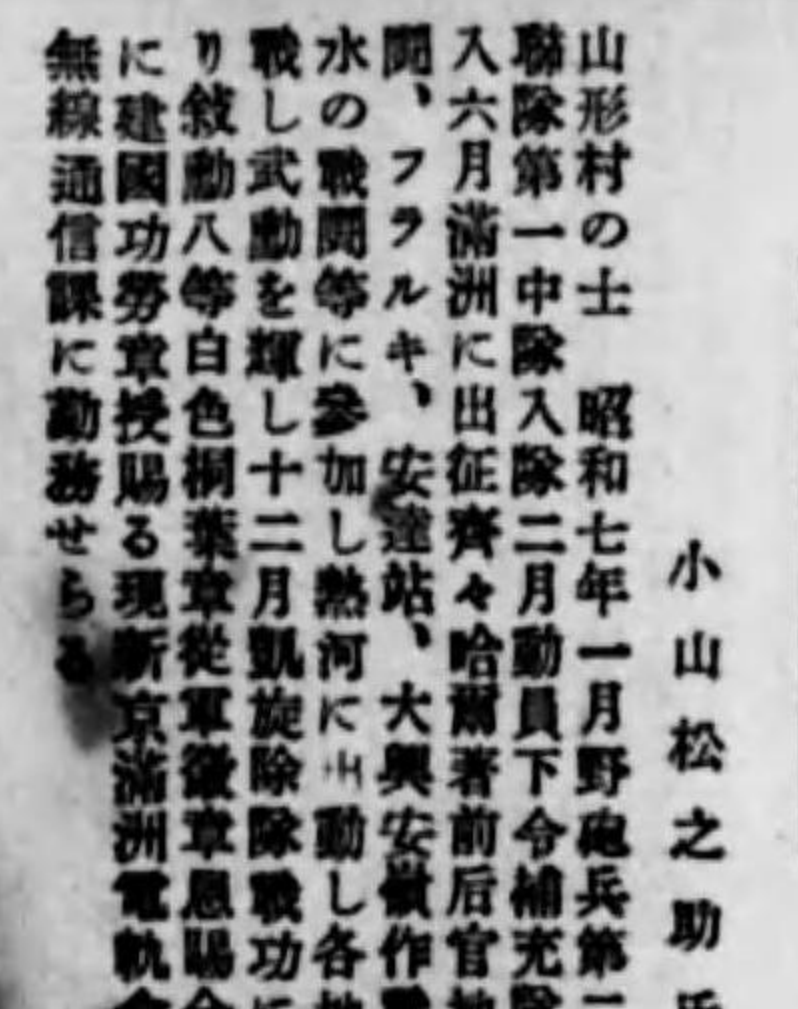 小山松之助氏
山形村の士　昭和七年一月野砲兵第二
聯隊第一中隊入隊二月動員下令補充隊
入六月滿洲に出征齊々哈爾著前后官地
鬪、フラルキ、安達站、大興安嶺作戰
水の戰鬪等に參加し熱河に出動し各地
戰し武勳を輝し十二月凱旋除隊戰功に
り敍勳八等白色桐葉章從軍徽章恩賜
に建國功勞章授賜る現新京滿洲電軌
無線通信課に勤務せらる